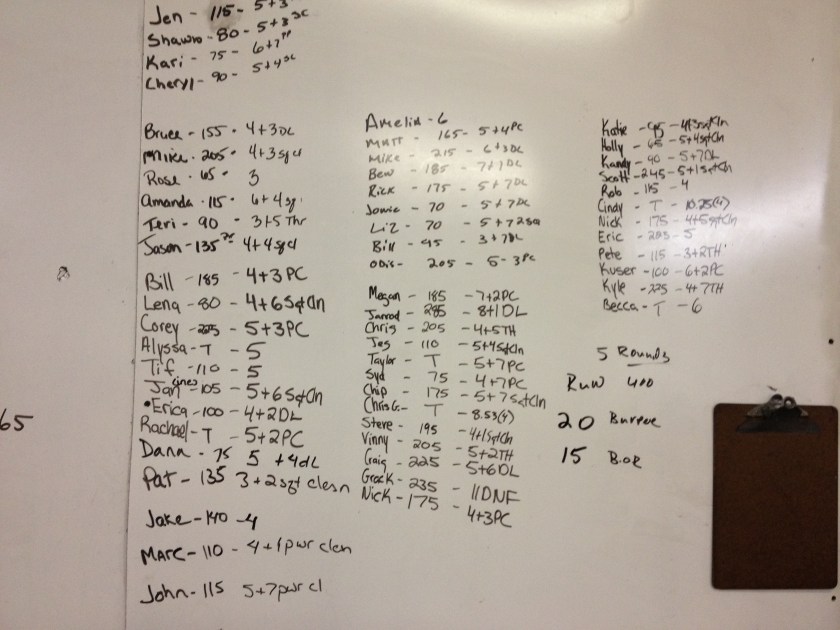 Jen - 115 - 5+3
Shawn - 80 - 5+3 SC
Kari - 75 - 6+7 PP
Cheryl - 90 - 5+4 SC
Bruce - 155 - 4+3 DL
Mike - 205 - 4+3 sqcl
Rose - 65 - 3
Amanda - 115 - 6+4 sq
Teri - 90 - 3+5 Thr
Jason - 135 - 4+4 sqcl
Bill - 185 - 4+3PC
Lena - 80 - 4+6SqtCln
Corey - 225 - 5+3PC
Alyssa - T - 5
Tif - 110 - 5
Jan - 105 - 5+6SqtCln
Erica - 100 - 4+2DL
Rachael - T - 5+2PC
Dana - 75 5 +4dL
Pat - 135 3+2 sqt clean
Jake - 140 - 4
MARC - 110 - 4+1 pwr clen
John - 115 5+7 pwr cl
65
Amelia - 6
MATT - 165 - 5+4PC
Mike - 215 - 6+3DL
Ben - 185 - 7+1DL
Rick - 175 - 5+7DL
Jowie - 70 - 5+7DL
Liz - 70 - 5+7
Bill - 95 - 3+7DL
ODIS - 205 - 5-3PC
Megan - 185 - 7+2PC
Jarrod - 285 - 8+1DL
Chris - 205 - 4+5TH
Jes - 110 - 5+4SqtCln
Taylor - T - 5+7PC
Syd - 75 - 4+7PC
Chip - 175 - 5+7SqtCln
Chris G. - T - 8.53(4)
Steve - 195 - 4+1SqtCln
Vinny - 205 - 5+2TH
Craig - 225 - 5+6DL
Grock - 235 - 11DNF
Nick - 175 - 4+3PC
Katie - 95 - 4+3sqtCln
Holly - 65 - 5+4sqtCln
Kandy - 90 - 5+7DL
Scott - 245 - 5+1SqtCln
Rob - 185 - 4
Cindy - T - 10.25(4)
Nick - 175 - 4+5sqtCln
Eric - 205 - 5
Pete - 115 - 3+2TH
Kuser - 100 - 6+2PC
Kyle - 225 - 4+7TH
Becca - T - 6
5 Rounds
Run 400
20 Burpee
15 B.O.R